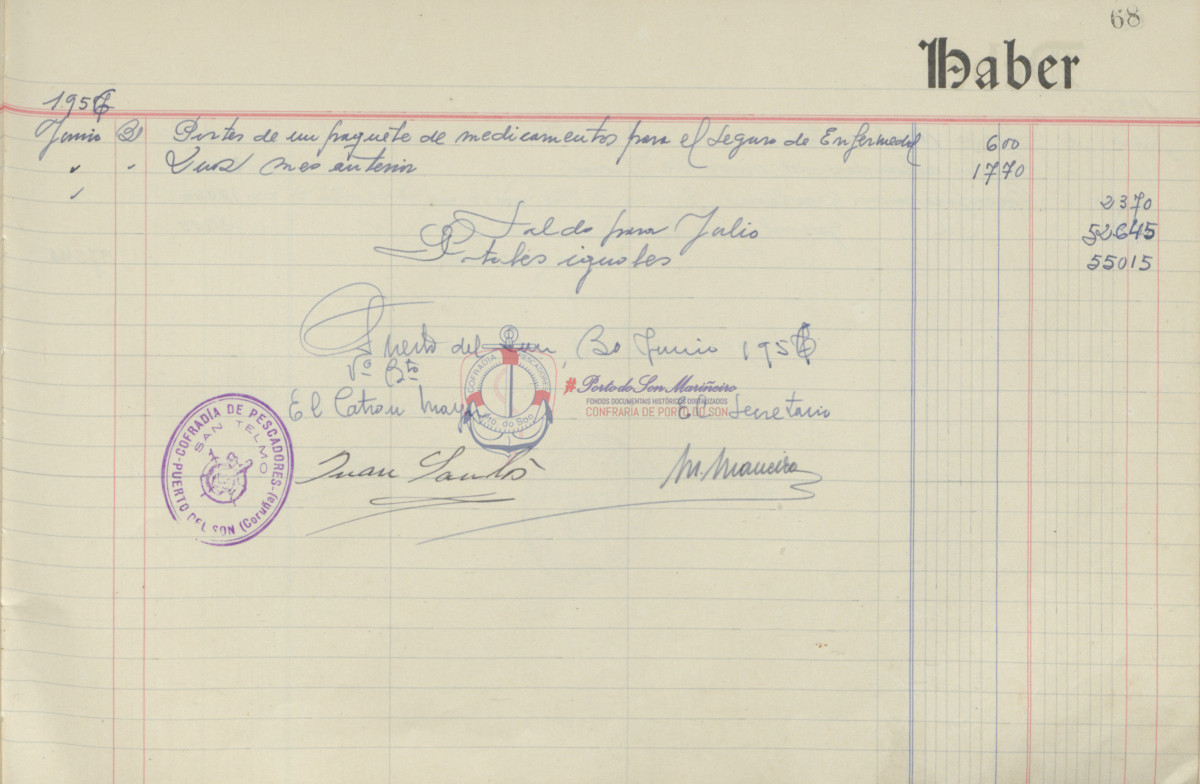 68
Haber
195
Junio 30 Portes de un paquete de medicamentos para el Seguro de Enfermedad 600
" " Luz mes anterior 1770
" 2370
Saldo para Julio 52645
Totales iguales 55015
Puerto del Son, 30 Junio 195
Vº Bto
El Patron Mayor El Secretario
Juan Santos M. Maneiro
COFRADÍA DE PESCADORES
SAN TELMO
PUERTO DEL SON (Coruña)
COFRADIA PESCADORES
Pto. do Son
#Porto do Son Mariñeiro
FONDOS DOCUMENTAIS HISTÓRICOS DIGITALIZADOS
CONFRARÍA DE PORTO DO SON